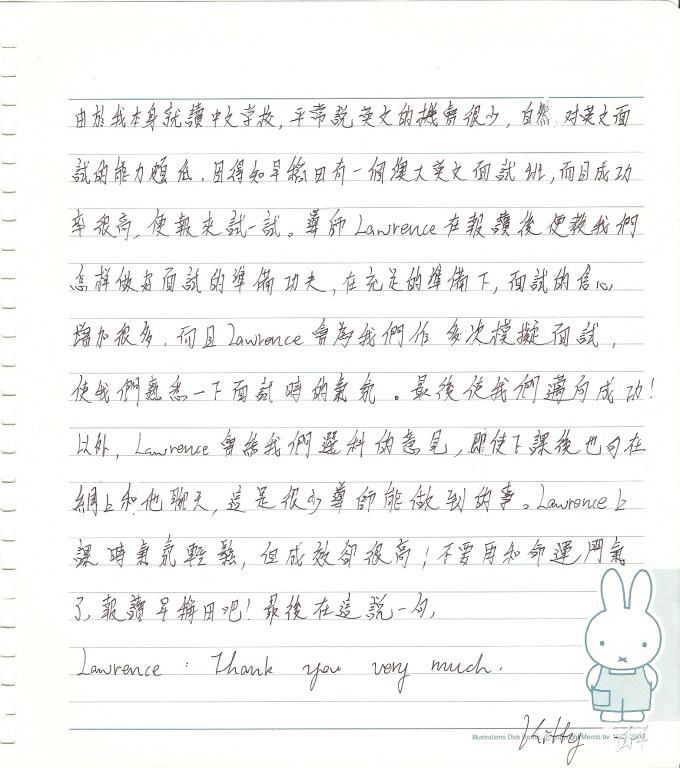 由於我本身就讀中文學校，平常說英文的機會很少，自然对英文面
試的能力頗低。因得知早稻田有一個澳大英文面試班，而且成功
率很高，便報來試一試。導師Lawrence在報讀後便教我們
怎樣做好面試的準備功夫，在充足的準備下，面試的信心
增加很多，而且Lawrence會為我們作多次模擬面試，
使我們熟悉一下面試時的氣氛。最後使我們邁向成功！
以外，Lawrence會給我們選科的意見，即使下課後也可在
網上和他聊天，這是很少導師能做到的事。Lawrence上
課時氣氛輕鬆，但成效卻很高！不要再和命運鬥氣
了，報讀早稻田吧！最後在這說一句，
Lawrence : Thank you very much.
Illustrations Dick Bruna Mercis bv,
Kitty